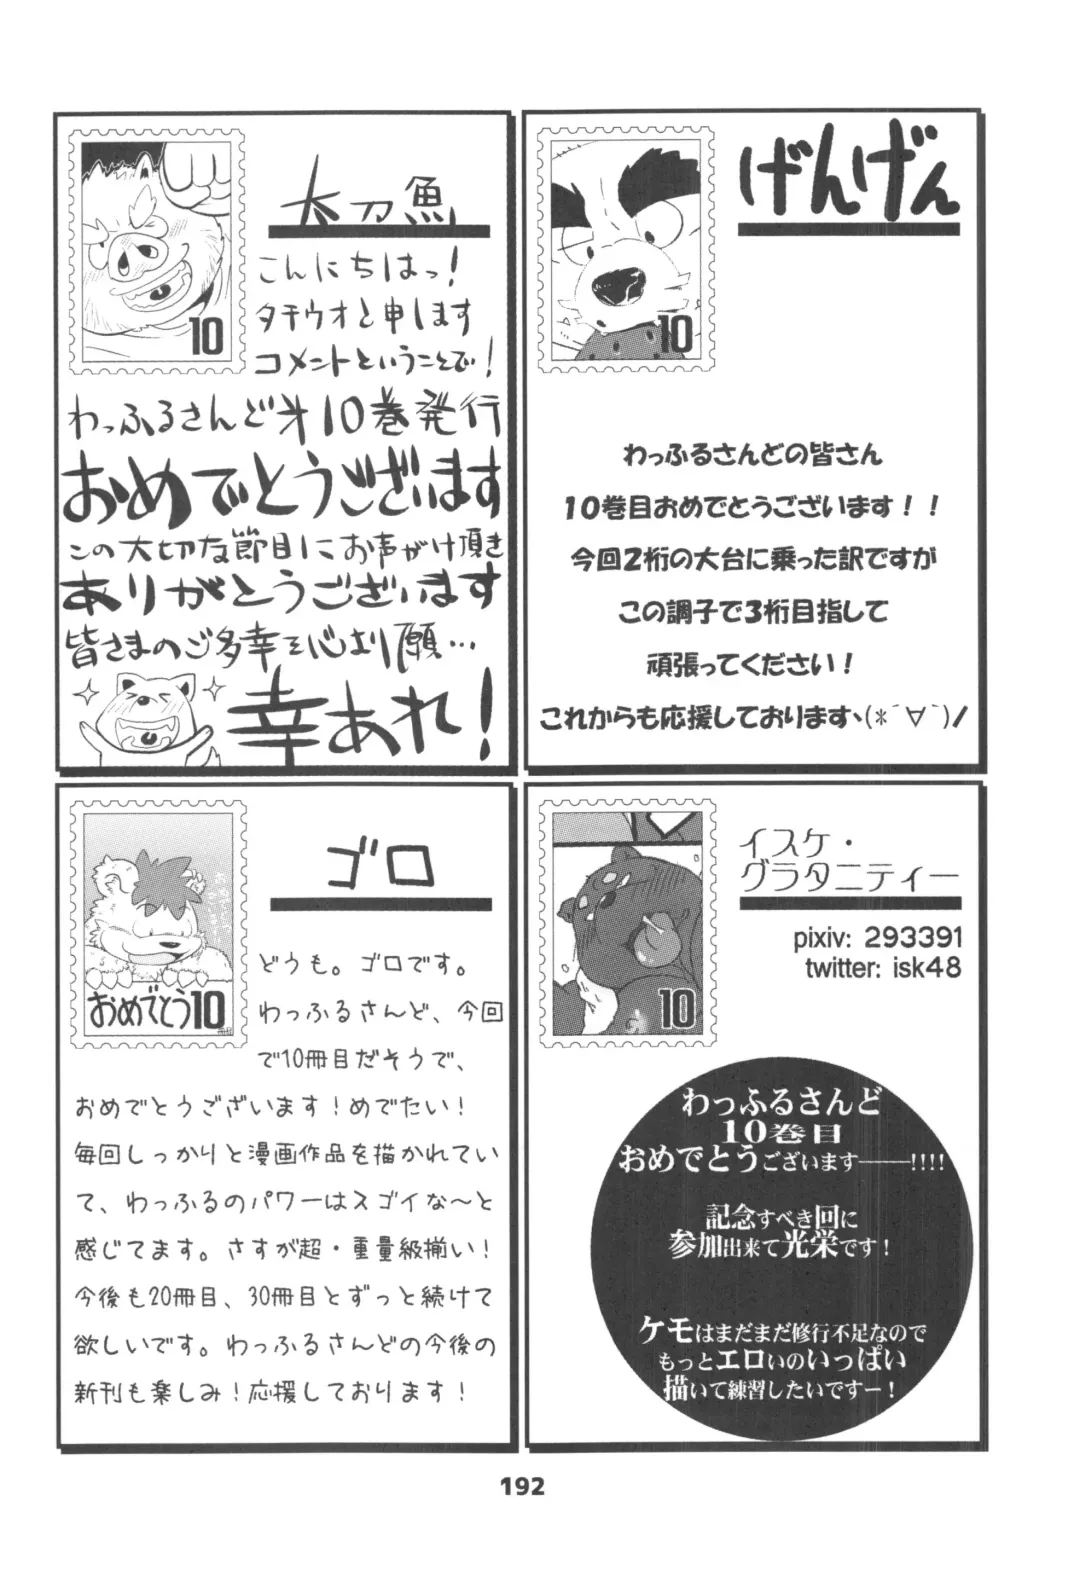 太刀魚
こんにちはっ!
タチウオと申します
コメントということで!
わっふるさんど才10巻発行
おめでとうございます
この大切な節目にお声がけ頂き
ありがとうございます
皆さまのご多幸を心より願…
幸あれ!
10
げんげん
10
わっふるさんどの皆さん
10巻目おめでとうございます!!
今回2桁の大台に乗った訳ですが
この調子で3桁目指して
頑張ってください!
これからも応援しておりますヽ(*´∀`)ノ
ゴロ
おめでとう10
どうも。ゴロです。
わっふるさんど、今回
で10冊目だそうで、
おめでとうございます!めでたい!
毎回しっかりと漫画作品を描かれてい
て、わっふるのパワーはスゴイな〜と
感じてます。さすが超・重量級揃い!
今後も20冊目、30冊目とずっと続けて
欲しいです。わっふるさんどの今後の
新刊も楽しみ!応援しております!
イスケ・
グラタニティー
pixiv: 293391
twitter: isk48
10
わっふるさんど
10巻目
おめでとうございます———!!!!
記念すべき回に
参加出来て光栄です!
ケモはまだまだ修行不足なので
もっとエロいのいっぱい
描いて練習したいですー!
192